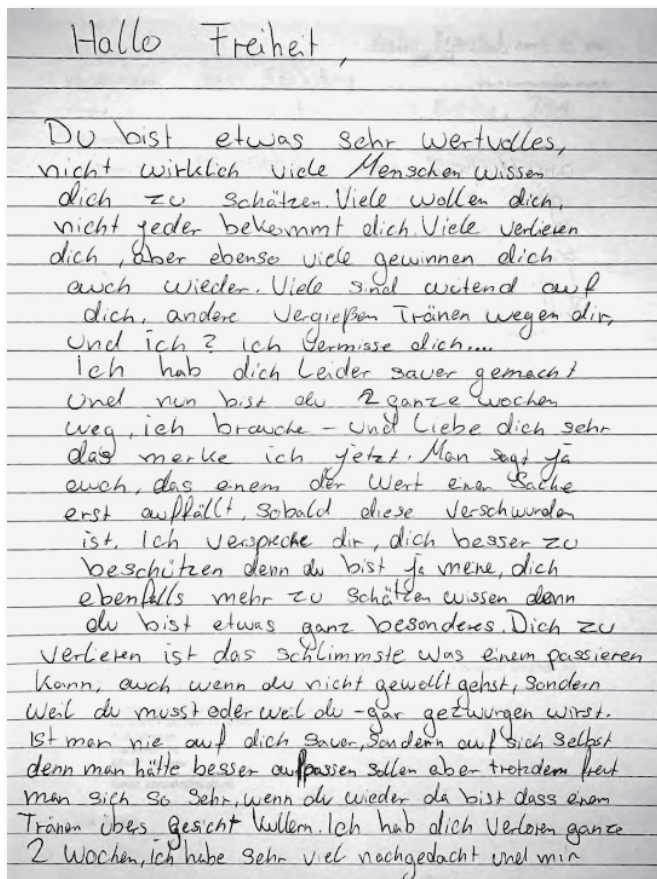 Hallo Freiheit,
Du bist etwas sehr wertvolles,
nicht wirklich viele Menschen wissen
dich zu schätzen. Viele wollen dich,
nicht jeder bekommt dich. Viele verlieren
dich, aber ebenso viele gewinnen dich
auch wieder. Viele sind wütend auf
dich, andere vergießen Tränen wegen dir,
und ich? ich vermisse dich....
Ich hab dich Leider sauer gemacht
und nun bist du 2 ganze wochen
weg, ich brauche - und Liebe dich sehr
das merke ich jetzt. Man sagt ja
auch, das einem der Wert einer Sache
erst auffällt, sobald diese verschwunden
ist. Ich verspreche dir, dich besser zu
beschützen denn du bist ja meine, dich
ebenfalls mehr zu schätzen wissen denn
du bist etwas ganz besonderes. Dich zu
verlieren ist das schlimmste was einem passieren
kann, auch wenn du nicht gewollt gehst, sondern
weil du musst oder weil du - gar gezwungen wirst.
Ist man nie auf dich sauer, sondern auf sich selbst
denn man hätte besser aufpassen sollen aber trotzdem freut
man sich so sehr, wenn du wieder da bist dass einem
Tränen übers gesicht kullern. Ich hab dich verloren ganze
2 Wochen, ich habe sehr viel nachgedacht und mir